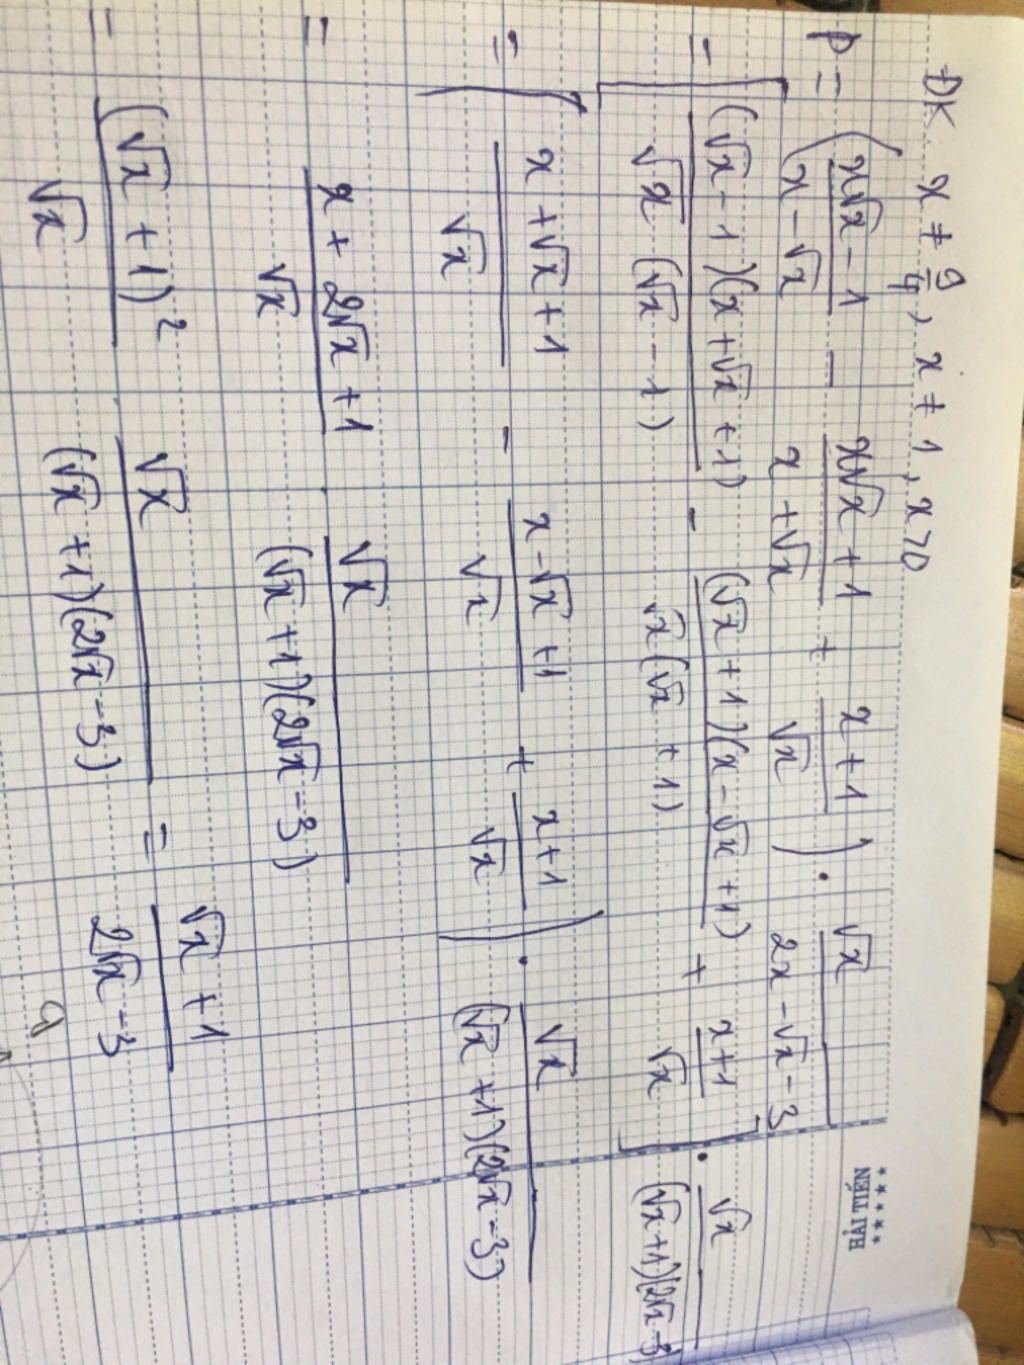 ĐK x ≠ 9/4, x ≠ 1, x>0
P = ( (x√x - 1)/(x - √x) - (x√x + 1)/(x + √x) + (x + 1)/√x ) . √x/(2x - √x - 3)
= [ (√x - 1)(x + √x + 1)/(√x (√x - 1)) - (√x + 1)(x - √x + 1)/(√x (√x + 1)) + (x+1)/√x ] . √x/((√x+1)(2√x-3)
= ( (x + √x + 1)/√x - (x - √x + 1)/√x + (x+1)/√x ) . √x/((√x + 1)(2√x - 3))
= (x + 2√x + 1)/√x . √x/((√x + 1)(2√x - 3))
= (√x + 1)²/√x . √x/((√x + 1)(2√x - 3)) = (√x + 1)/(2√x - 3)
★★★★★
HẢI TIẾN